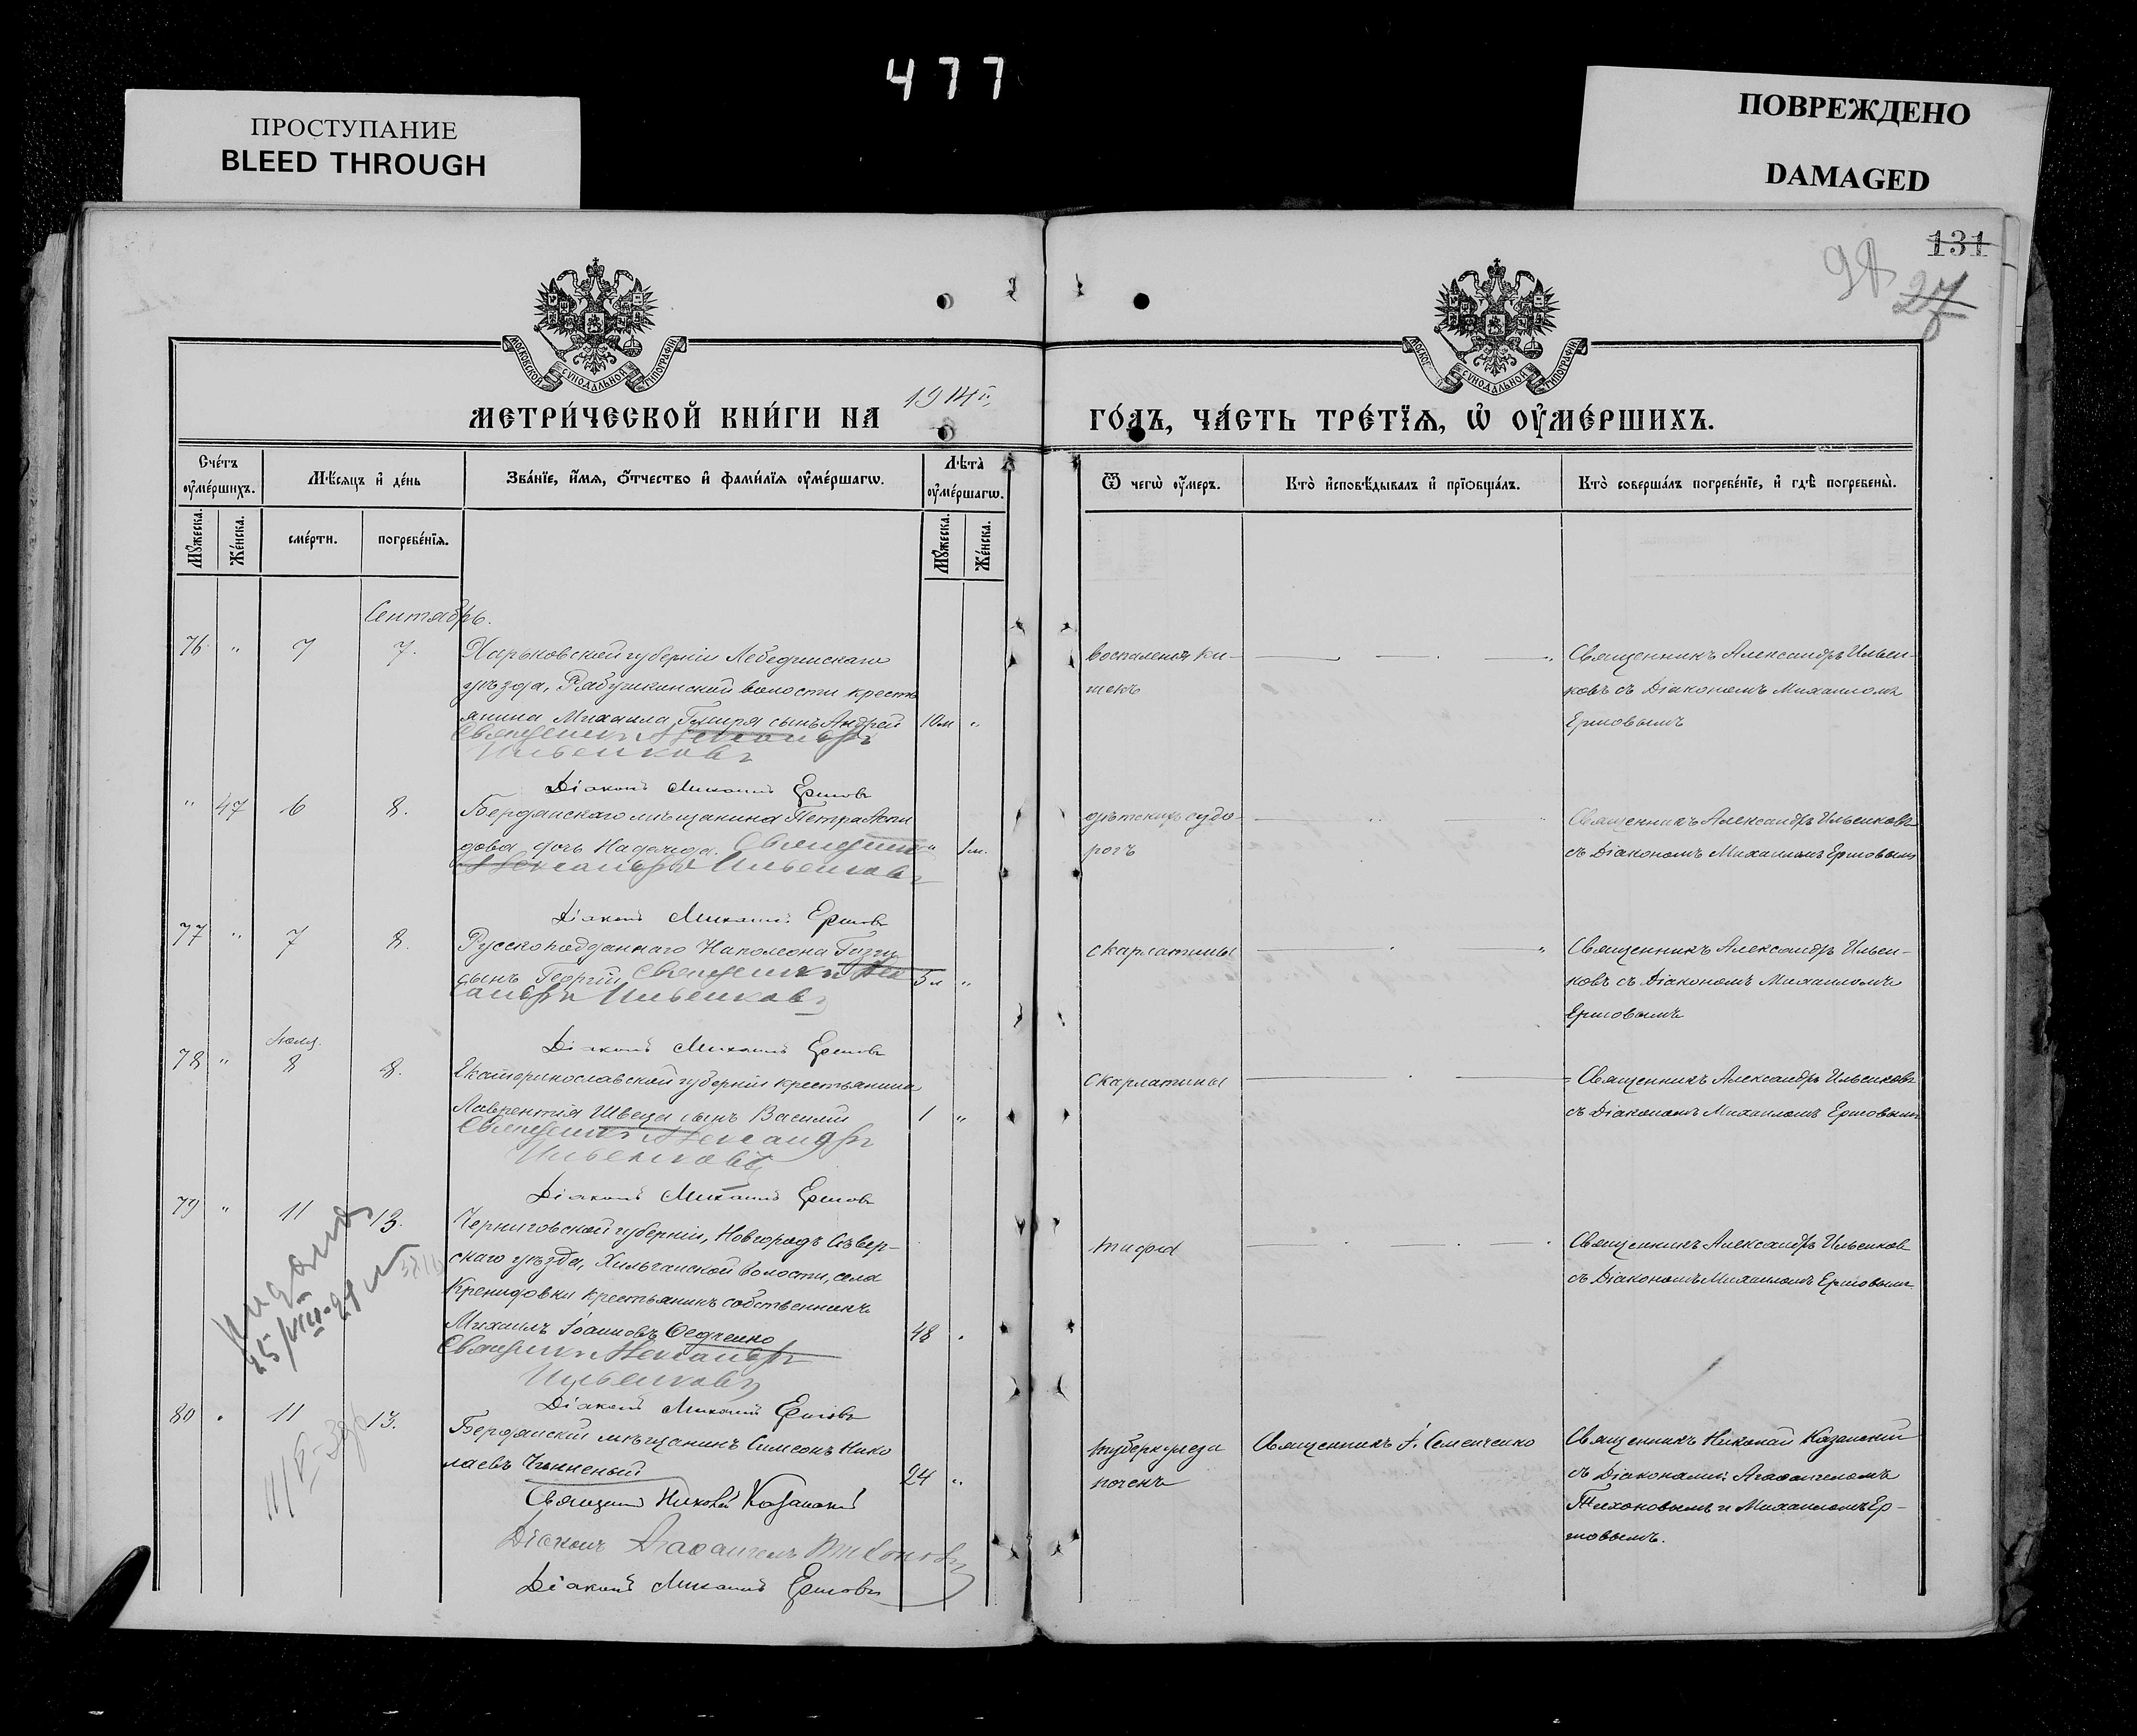 477
ПРОСТУПАНИЕ
BLEED THROUGH
ПОВРЕЖДЕНО
DAMAGED
131
27
МОСКОВСКОЙ СѴНОДАЛЬНОЙ ТИПОГРАФІИ
МЕТРИ́ЧЕСКОЙ КНИ́ГИ НА 1914 г. ГО́ДЪ, ЧА́СТЬ ТРЕ́ТЇѦ, Ѡ҆ ОУ҆МЕ́РШИХЪ.
Сче́тъ оу҆ме́ршихъ.
Мꙋ́жеска.
Же́нска.
Мѣ́сѧцъ и҆ де́нь
сме́рти.
погребе́нїѧ.
Зва́нїе, и҆́мѧ, ѻ҆́тчество и҆ фами́лїѧ оу҆ме́ршагѡ.
Лѣ̀та̀ оу҆ме́ршагѡ.
Мꙋ́жеска.
Же́нска.
Ѿ чегѡ̀ оу҆́меръ.
Кто̀ и҆сповѣ́дывалъ и҆ прїѡбща́лъ.
Кто̀ соверша́лъ погребе́нїе, и҆ гдѣ̀ погребены̀.
Сентябрь.
76 " 7 7. Харьковской губерніи Лебединскаго
уѣзда, Рябушкинской волости кресть
янина Михаила Гмиря сынъ Андрей 10м "
Священникъ Александръ
Ильенковъ
Діаконъ Михаилъ Ершовъ
воспаленія ки-
шекъ
Священникъ Александръ Ильен-
ковъ съ Діакономъ Михаиломъ
Ершовымъ
" 47 6 8. Бердянскаго мѣщанина Петра
дова дочь Надежда. Священникъ " 1м.
Александръ Ильенковъ
Діаконъ Михаилъ Ершовъ
дѣтскихъ судо-
рогъ
Священникъ Александръ Ильенковъ
съ Діакономъ Михаиломъ Ершовымъ
77 " 7 8. Русскоподданнаго Наполеона
сынъ Георгій Священникъ Алек 5 "
сандръ Ильенковъ
Діаконъ Михаилъ Ершовъ
скарлатины
Священникъ Александръ Ильен-
ковъ съ Діакономъ Михаиломъ
Ершовымъ
78 " 8 8. Екатеринославской губерніи крестьянина
Лаврентія Швеца сынъ Василій 1 "
Священникъ Александръ
Ильенковъ
Діаконъ Михаилъ Ершовъ
скарлатины
Священникъ Александръ Ильенковъ
съ Діакономъ Михаиломъ Ершовымъ
79 " 11 13. Черниговской губерніи, Новгородъ Сѣвер-
скаго уѣзда, Хильчанской волости, села
Кренидовки крестьянинъ собственникъ
Михаилъ Іоанновъ Ѳедченко 48 "
Священникъ Александръ
Ильенковъ
Діаконъ Михаилъ Ершовъ
тифа
Священникъ Александръ Ильенковъ
съ Діакономъ Михаиломъ Ершовымъ
Выдана
25/VIII-24
80 " 11 13. Бердянскій мѣщанинъ Симеонъ Нико
лаевъ 24 "
Священникъ Николай Казанскій
Діаконъ Агаѳангелъ Тихоновъ
Діаконъ Михаилъ Ершовъ
туберкулеза
почекъ
Священникъ І. Семенченко
Священникъ Николай Казанскій
съ Діаконами: Агаѳангеломъ
Тихоновымъ и Михаиломъ Ер-
шовымъ.